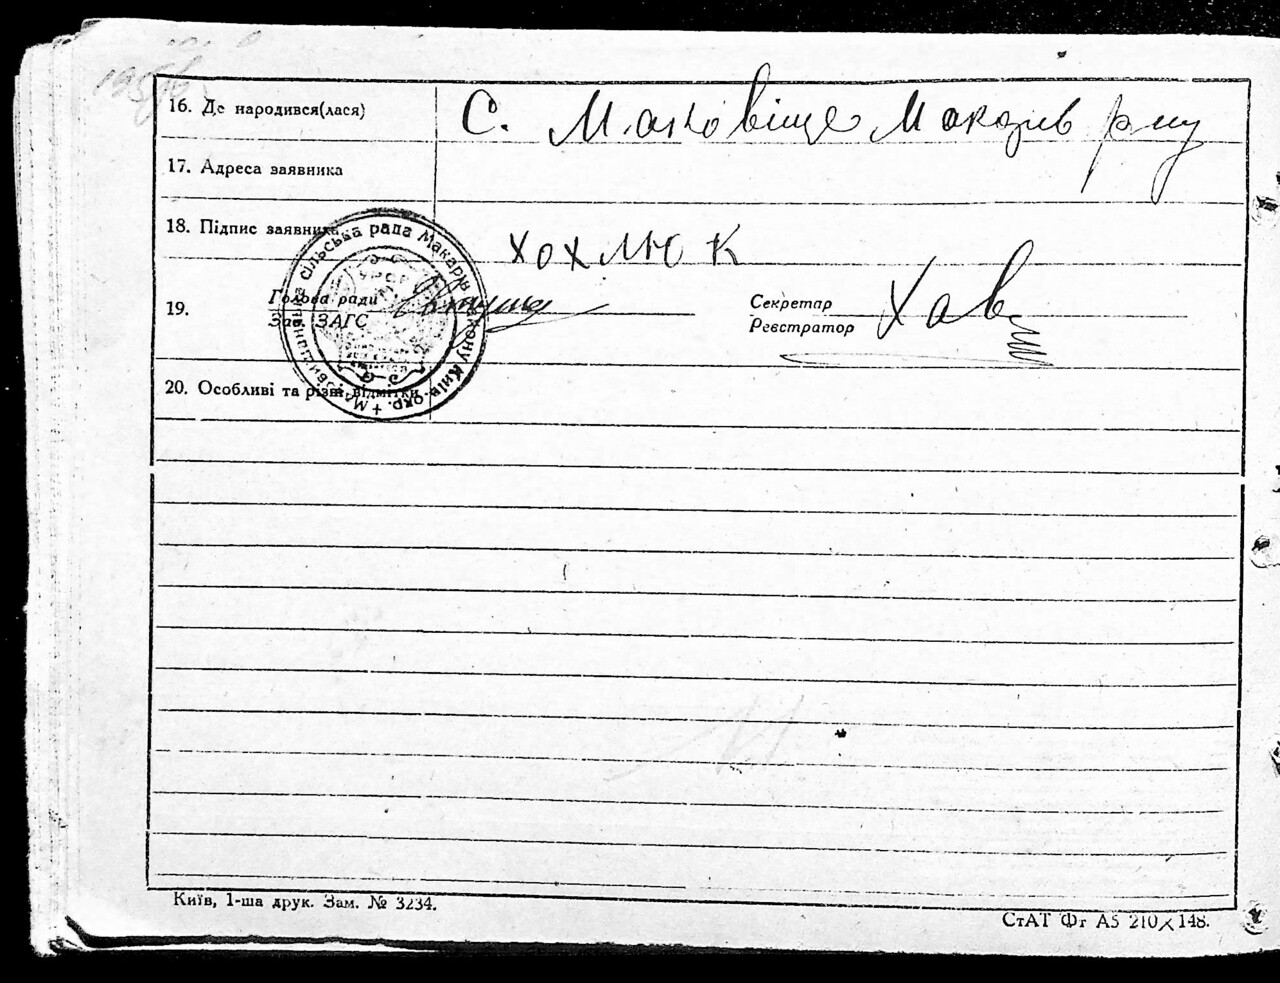 16. Де народився(лася)
С. Маковіще Макарив р ну
17. Адреса заявника
18. Підпис заявника
хохлюк
19. Голова ради
Зав. ЗАГС
Секретар
Реєстратор
Хав
сільська рада Макарів
УРСР
20. Особливі та різні відмітки
Київ, 1-ша друк. Зам. № 3234.
СтАТ Фг А5 210×148.